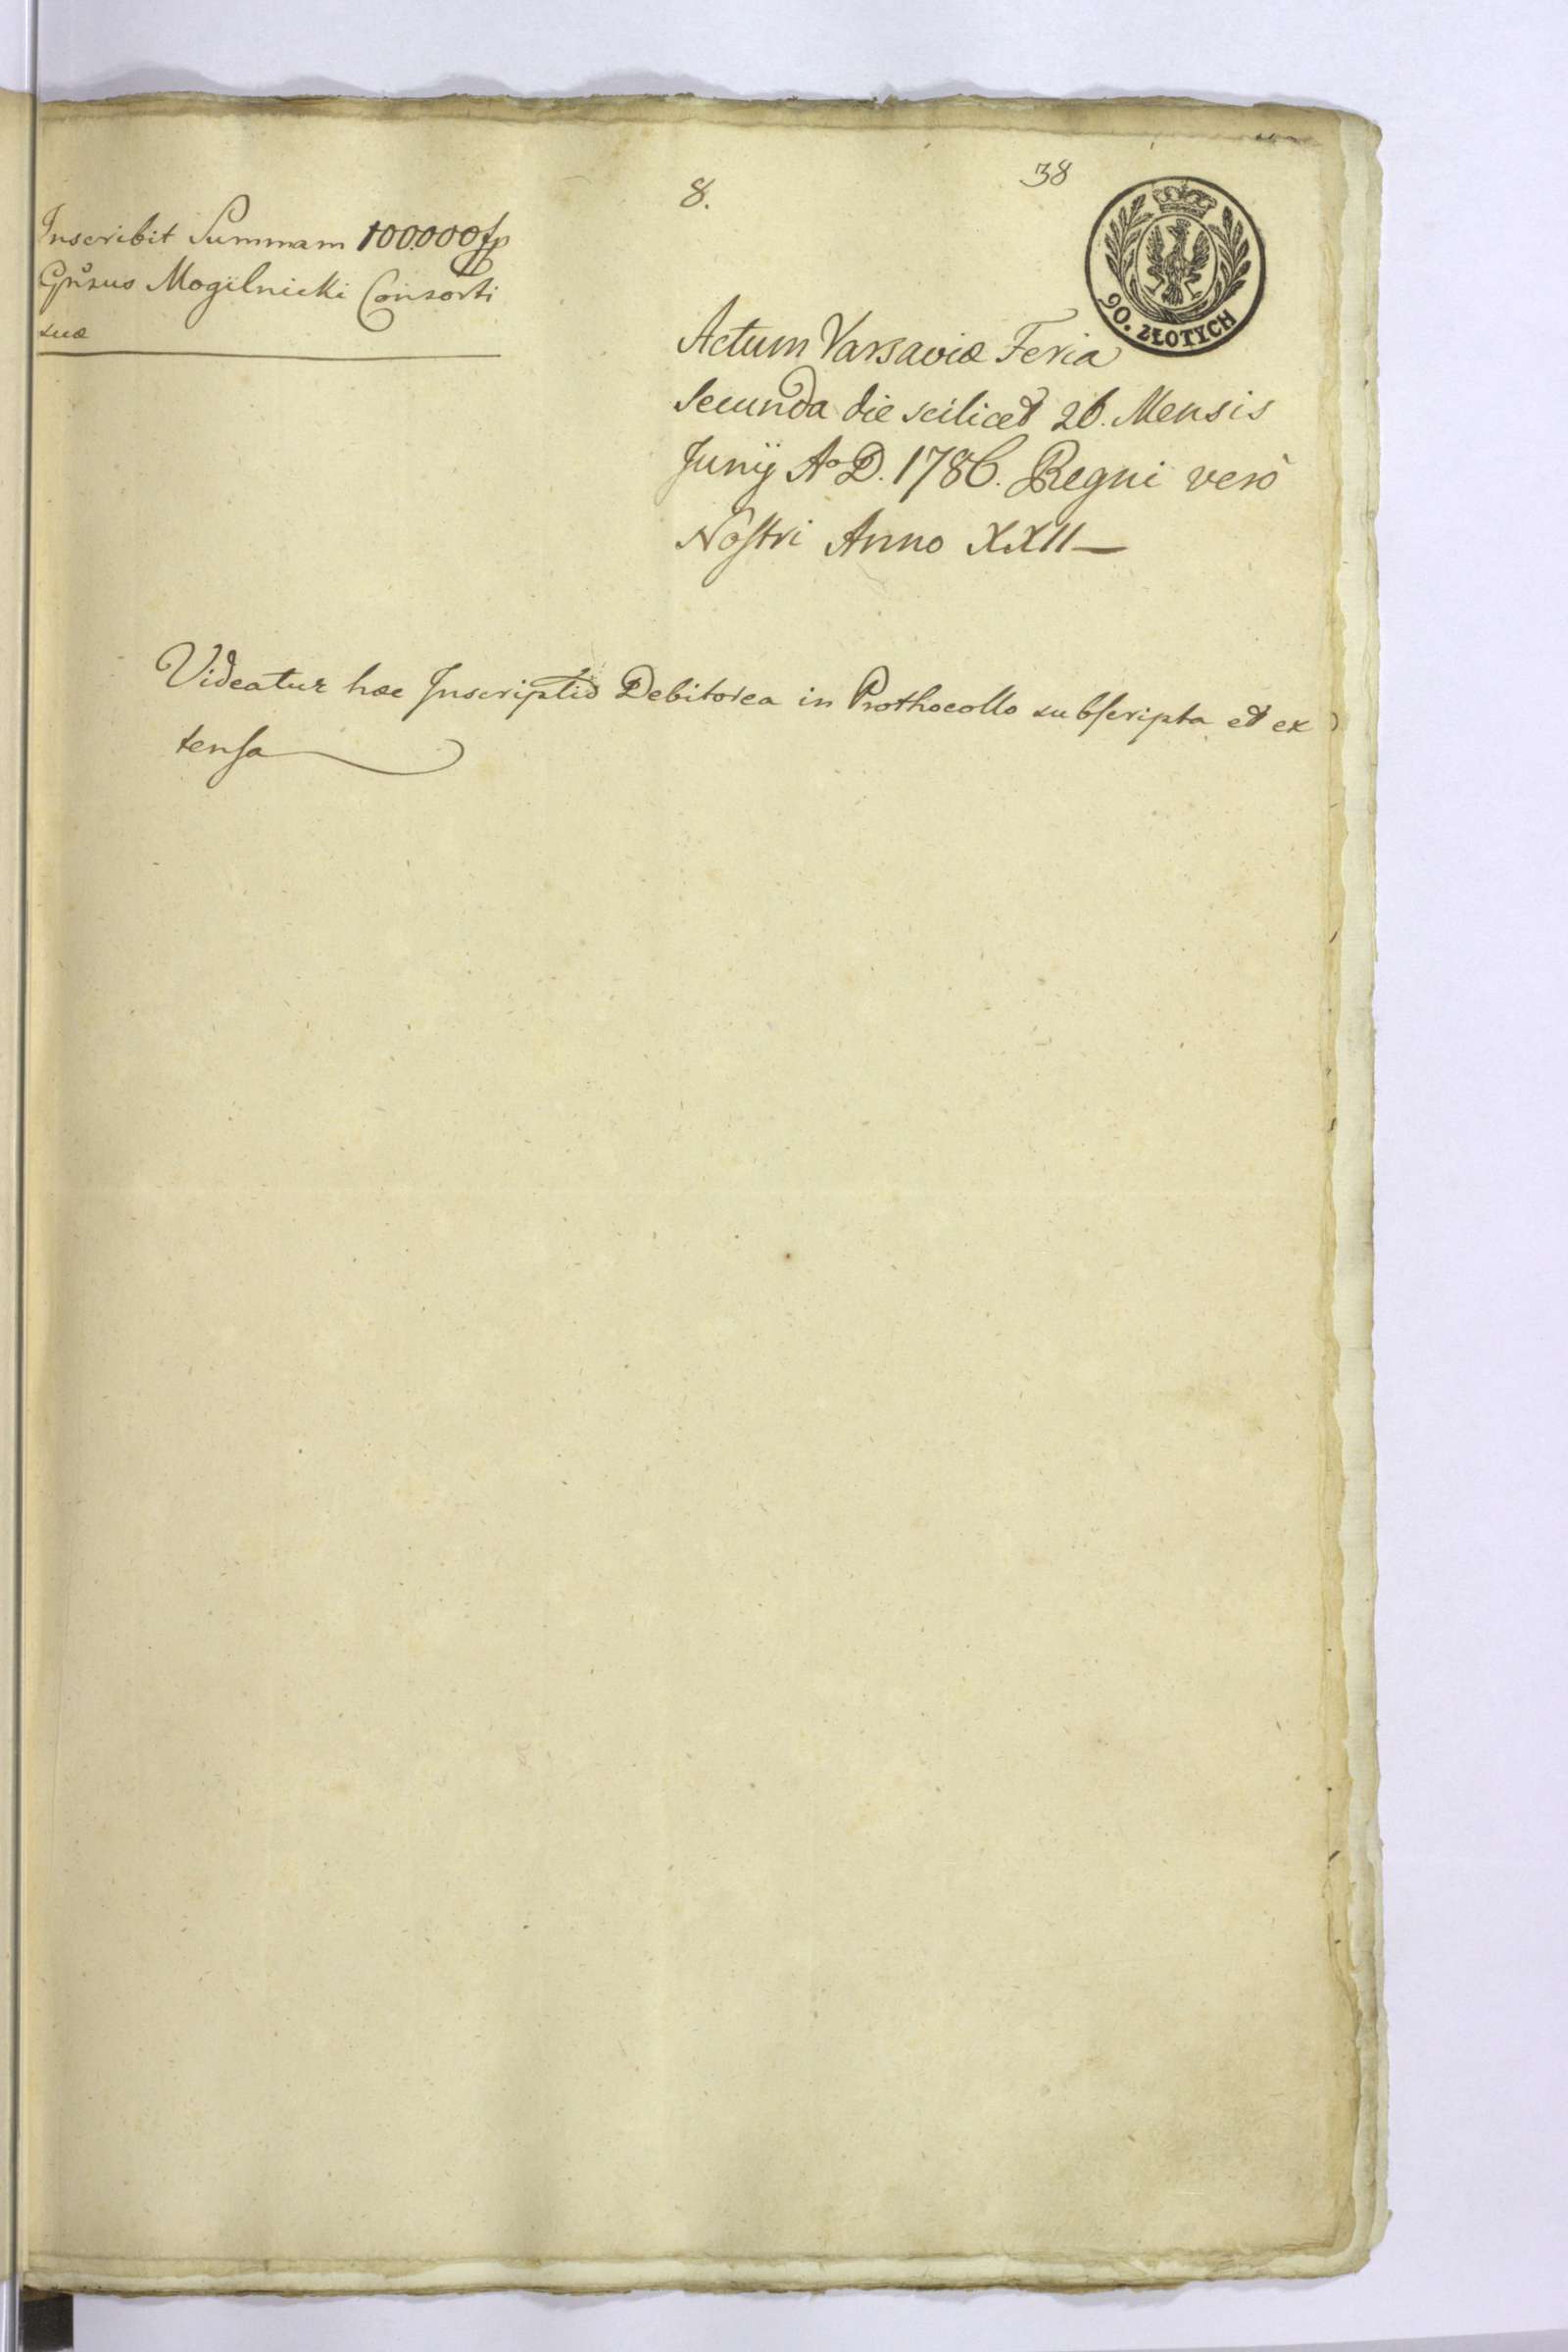 8.
38
90. ZŁOTYCH
Inscribit Summam 100000 fp
Gnsus Mogilnicki Consorti
suæ
Actum Varsaviæ Feria
Secunda die scilicet 26. Mensis
Junÿ Aº D. 1786. Regni verò
Nostri Anno XXII—
Videatur hæc Inscriptio Debitorea in Prothocollo subscripta et ex
tensa